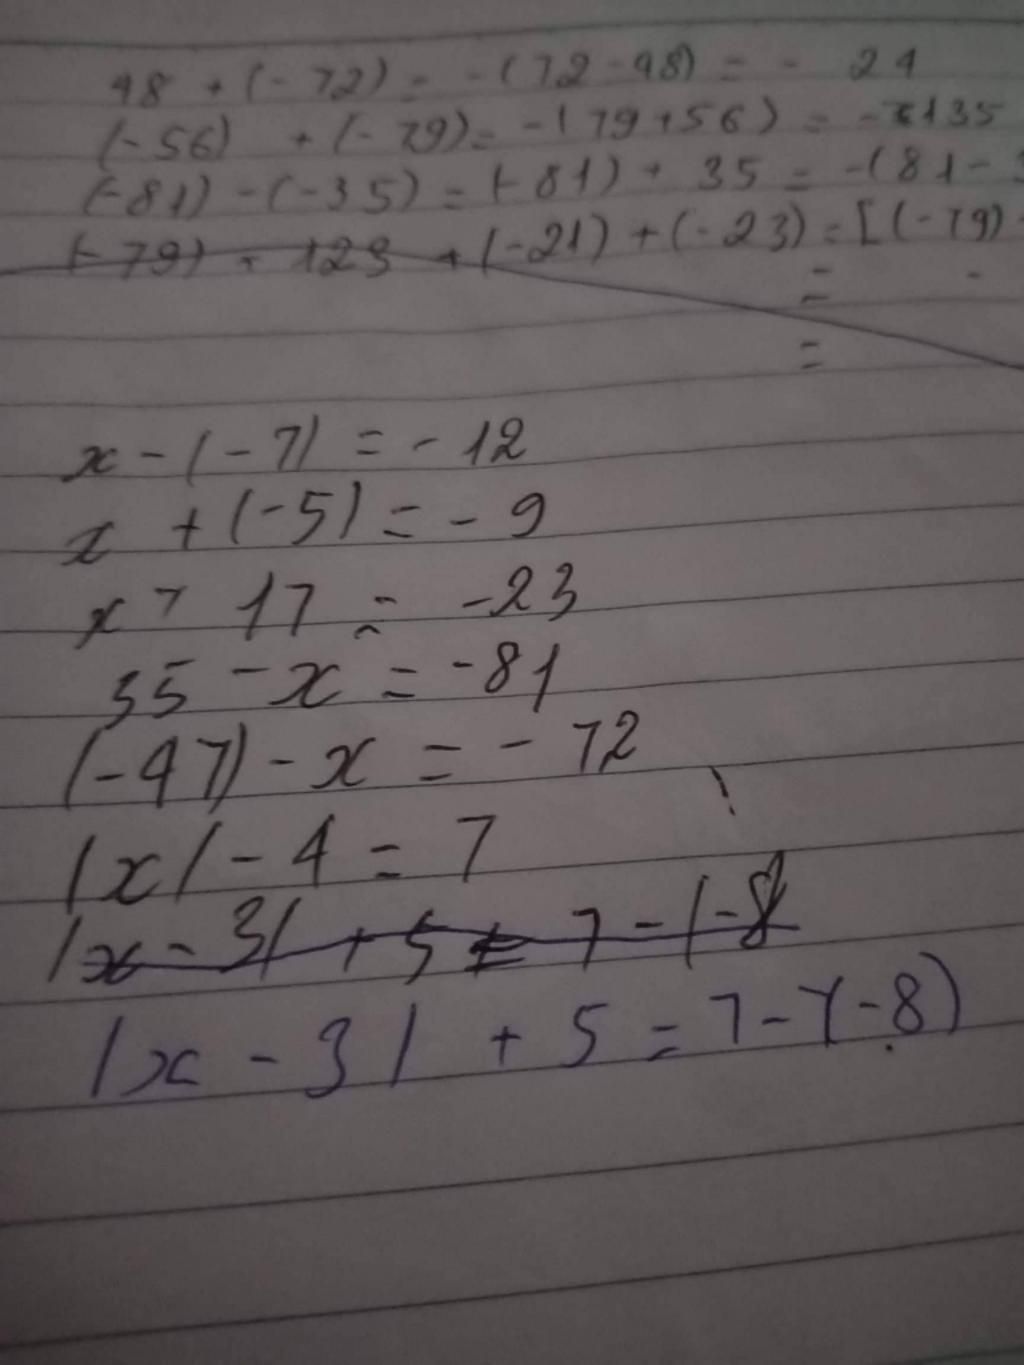 48 + (-72) = -(72-48) = - 24
(-56) + (-79) = -(79+56) = -135
(-81) - (-35) = (-81) + 35 = -(81-3
(-79) + 123 + (-21) + (-23) = [(-79)
= -
=
x - (-7) = -12
x + (-5) = -9
x + 17 = -23
35 - x = -81
(-47) - x = -72
|x| - 4 = 7
|x - 3| + 5 = 7 - (-8
|x - 3| + 5 = 7 - (-8)